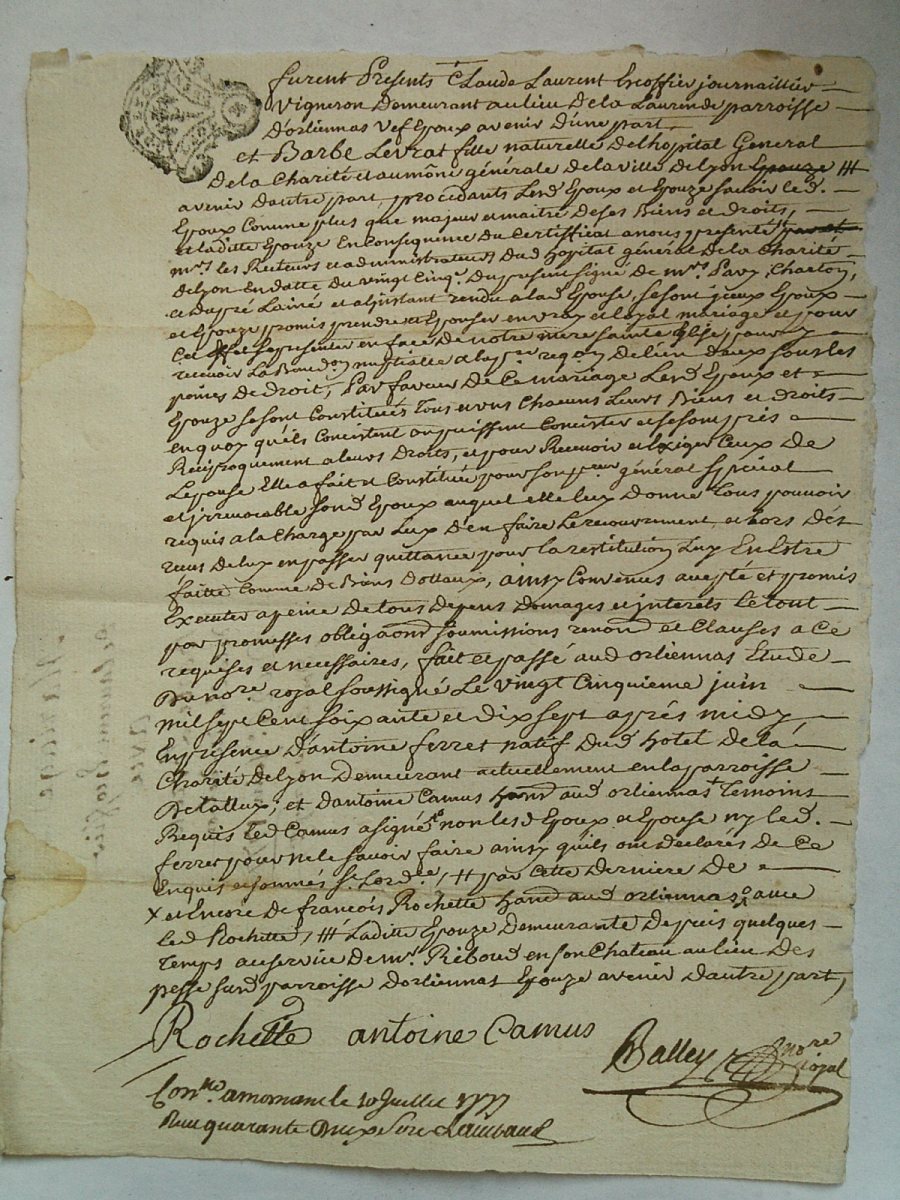 furent Presents Claude Laurent Escoffier journaillier
Vigneron Demeurant au lieu De la Laurende parroisse
D'orliennas Vef Epoux avenir D'une part
et Barbe Levrat fille naturelle Del hospital General
De la Charité et aumône générale De la ville De Lyon Epouze ///
avenir D'autre part, procédants Lesd. Epoux et Epouze savoir led.
Epoux Comme plus que majeur et maitre De ses Biens et Droits,
et laditte Epouze En Consequence Du Certifficat a nous presenté
mrs les Recteurs et administrateurs Dud. hopital général De la Charité
De Lyon En datte Du vingt Cinqe. Du present signé De mrs Pavy, Charton,
et Dupré Lainé et a l'instant rendu a lad. Epouse, se sont iceux Epoux
et Epouze promis prendre et Epouser en vray et loyal mariage et pour
Cet effet se presenter en face De notre mere sainte Eglise pour y
recevoir La Bened.on nuptialle a la pre. reqon. De l'un d'eux sous les
peines De Droit, Par faveur De Ce mariage Lesd. Epoux et
Epouze se sont Constitués Tous et uns Chacuns Leurs Biens et Droits
en quoy qu'ils Concistent ou puissent Concister et se sont pris
Reciproquement a leurs Droits, et pour Recevoir et Exiger Ceux De
L'epouse Elle a fait et Constitué pour son preur. général spécial
et irrevocable sond. Epoux auquel elle lux Donne Tous pouvoir
requis a la Charge par Lux D'en faire Le recouvrement et Lors Des
reçus De lux en passer quittance pour la restitution Luy En Estre
faitte Comme De Biens Dottaux, ainsy Convenus accepté et promis
Executer a peine De tous Depens Domages et interets Le tout
par promesses obligaons soumissions renond. et Clauses a Ce
requises et necessaires, fait et passé aud. orliennas Etude
Du nore. royal soussigné Le Vingt Cinquieme juin
mil sept Cent soixante et Dix sept après midy,
En présence D'antoine ferret natif Dud. hotel De la
Charité De Lyon Demeurant actuellement en la parroisse
De talluy; et D'antoine Camus hand. aud. orliennas + Temoins
Requis Led. Camus a signé non les d. Epoux et Epouse ny led.
ferret pour ne le savoir faire ainsy qu'ils ont Declarés De Ce
Enquis et sommés s. L'ord.ce, // par Cette Derniere De
x et Encore De françois Rochette hand. aud. orliennas, avec
led. Rochette, /// Laditte Epouze Demeurante Depuis quelques
Temps au service De mr. Riboud en son Chateau au lieu Des
pesse surd. parroisse D'orliennas Epouze avenir D'autre part,
Rochette antoine Camus
Balley nore royal
Conlle. a mornant le 10 Juillet 1777